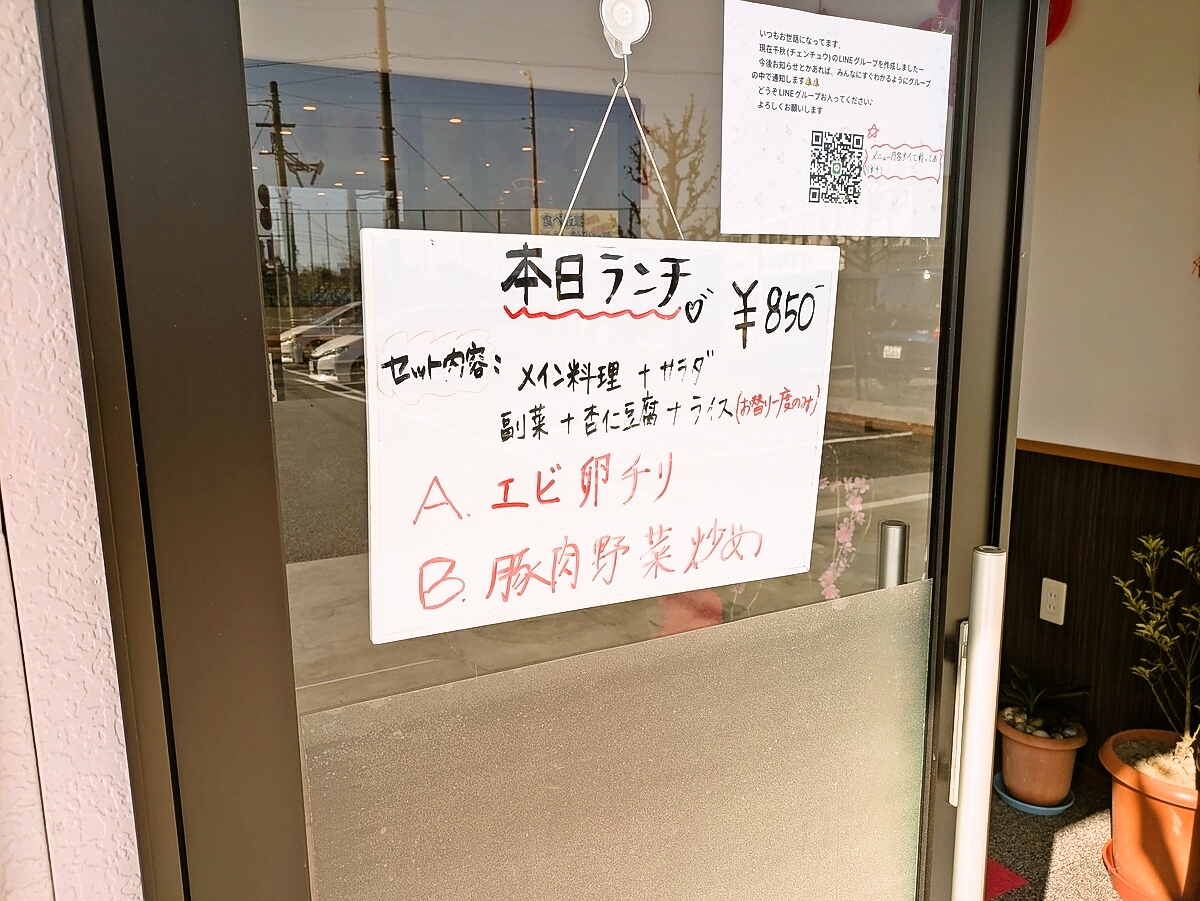 いつもお世話になってます、
現在千秋(チェンチュウ)のLINEグループを作成しましたー
今後お知らせとかあれば、みんなにすぐわかるようにグループ
の中で通知します🔔🔔
どうぞLINEグループお入ってください♪
よろしくお願いします
メニュー内容すべて載ってあ
ます!
本日ランチ
¥850-
セット内容:
メイン料理 + サラダ
副菜+杏仁豆腐+ライス(お替り一度のみ)
A. エビ卵チリ
B. 豚肉野菜炒め